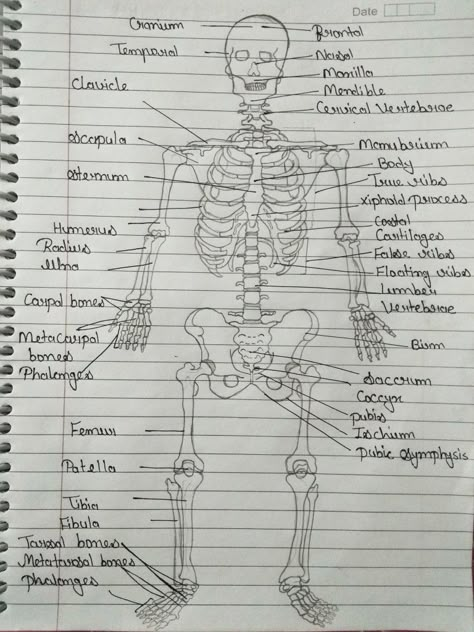 Date
Cranium
Frontal
Temporal
Nasal
Maxilla
Clavicle
Mendible
Cervical Vertebrae
Scapula
Manubrium
Body
Sternum
True ribs
xiphold process
Humerus
Costal
Cartilages
Radius
False ribs
Ulna
Floating ribs
Carpal bones
lumber
Vertebrae
MetaCarpal
bones
Bism
Phalenges
Saccrum
Coccyx
Pubis
Femur
Ischium
Pubic symphysis
Patella
Tibia
Fibula
Tarsal bones
Metatarsal bones
Phalenges